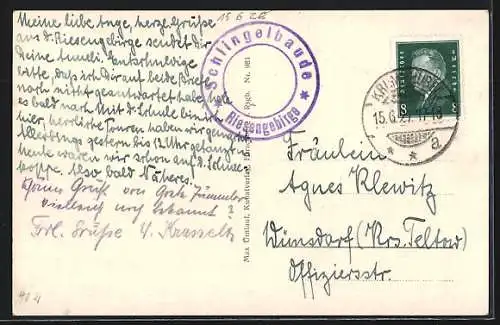 15 6 28
Meine liebe Ange, herzl. Grüße
aus d. Riesengebirge sendet dir
Deine Anneli. Entschuldige
bitte, daß ich Dir auf beide Briefe
noch nicht geantwortet habe, hole
es bald nach. Mit d. Schule bin ich
hier, herrliche Touren haben wir gemacht
Allerdings gestern bis 12 Uhr getanzt
heute waren wir schon auf d. Schnee-
koppe. Also bald Näheres.
Schönen Gruß von Grete
vielleicht noch bekannt?
Frl. Grüße
Schlingelbaude
Riesengebirge
Max Umlauf, Kunstverlag,
Regb. Nr.
Deutsches Reich
8
15.6.
a
Fräulein
Agnes Klewitz
Wünsdorf (Krs. Teltow)
Offiziersstr.